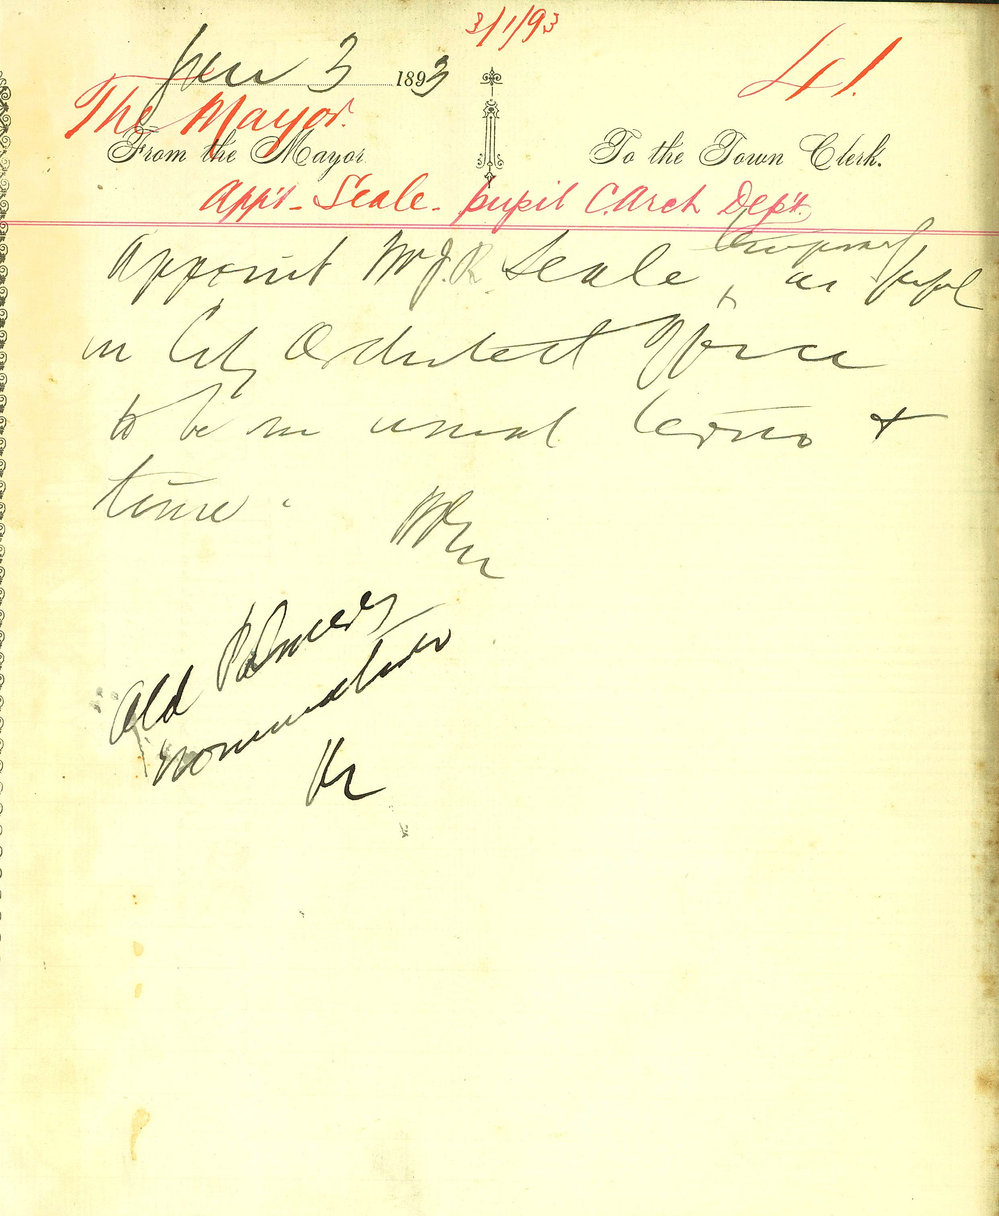 3/1/93
Jan 3 1893
41.
The Mayor.
From the Mayor
To the Town Clerk.
App't - Seale - pupil C. Arch Dep't.
Appoint W J. R. Seale, temporary as pupil
in City Architect Office
to be on usual terms &
time.
Ald
nomination